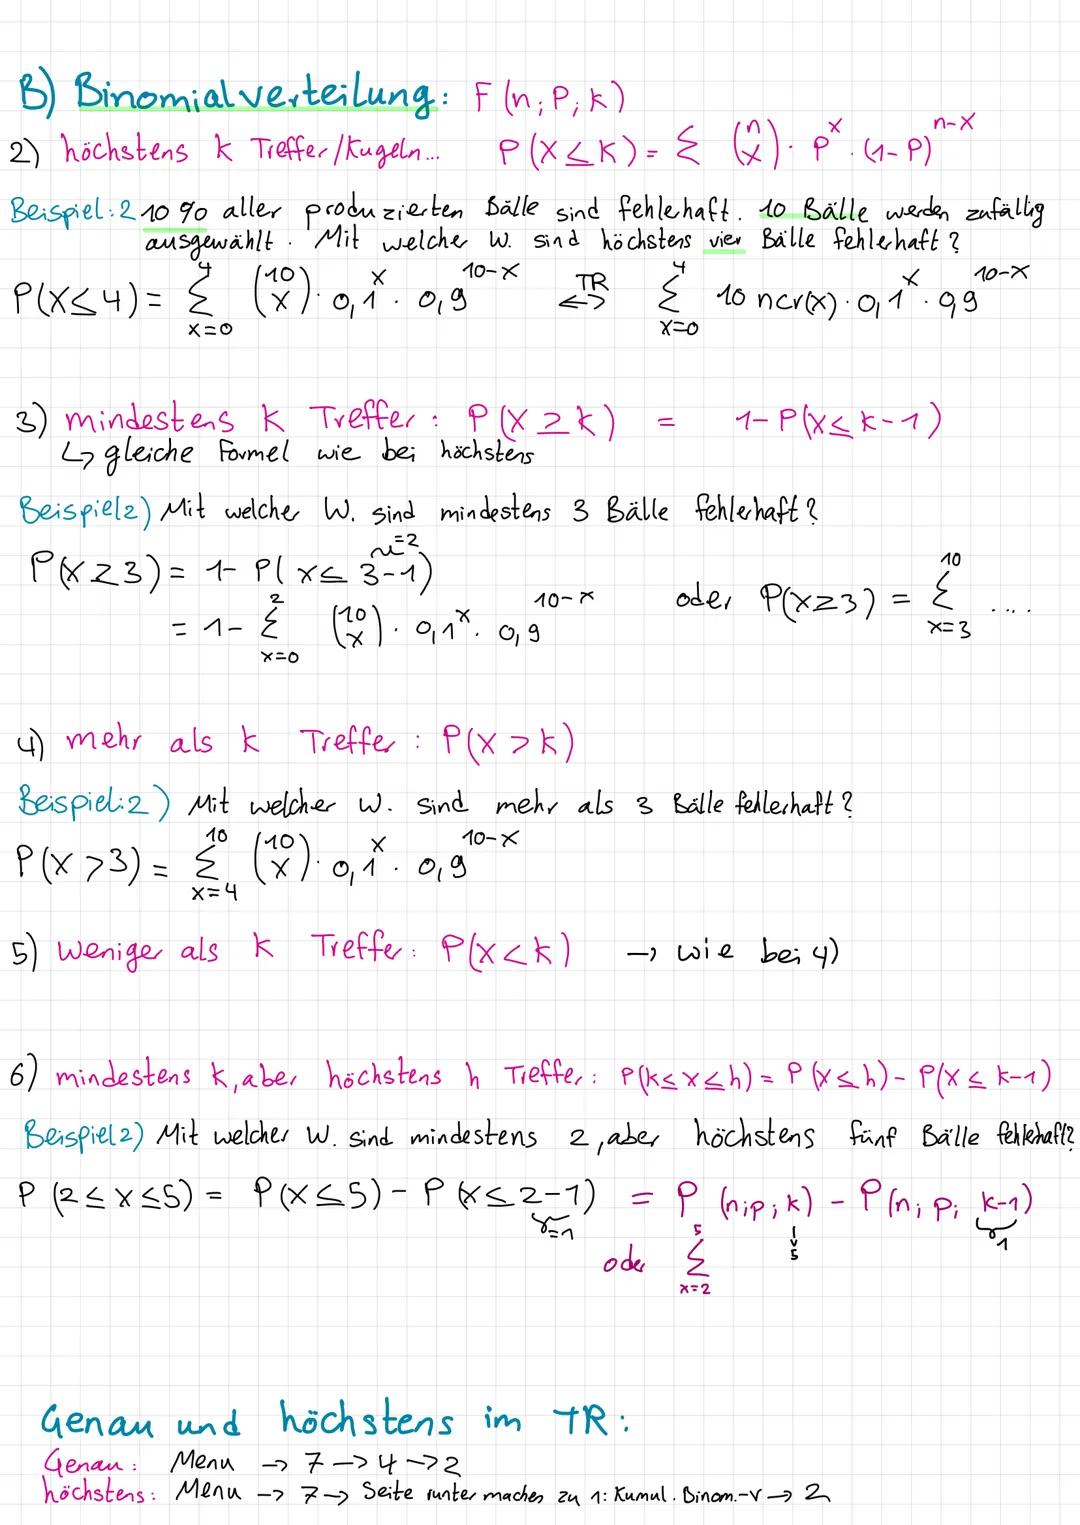 B) Binomialverteilung: F(n; P; k)
2) höchstens k Treffer/Kugeln... P(X ≤ k) = Σ (n x) · p^x · (1-P)^n-x
Beispiel: 2 10 % aller produzierten Bälle sind fehlerhaft. 10 Bälle werden zufällig
ausgewählt. Mit welche W. sind höchstens vier Bälle fehlerhaft?
P(X ≤ 4) = 4 Σ x=0 (10 x) · 0,1^x · 0,9^10-x TR <-> 4 Σ x=0 10 ncr(x) · 0,1^x · 0,9^10-x
3) mindestens k Treffer: P(X ≥ k) = 1-P(X ≤ k-1)
↳ gleiche Formel wie bei höchstens
Beispiel 2) Mit welche W. sind mindestens 3 Bälle fehlerhaft?
P(X ≥ 3) = 1- P( x ≤ 3-1) =2
= 1- 2 Σ x=0 (10 x) · 0,1^x · 0,9^10-x oder P(X ≥ 3) = 10 Σ x=3 ....
4) mehr als k Treffer: P(X > k)
Beispiel: 2) Mit welcher W. sind mehr als 3 Bälle fehlerhaft?
P(X > 3) = 10 Σ x=4 (10 x) · 0,1^x · 0,9^10-x
5) weniger als k Treffer: P(X < k) → wie bei 4)
6) mindestens k, aber höchstens h Treffer: P(k ≤ X ≤ h) = P(X ≤ h) - P(X ≤ k-1)
Beispiel 2) Mit welcher W. sind mindestens 2, aber höchstens fünf Bälle fehlerhaft?
P (2 ≤ x ≤ 5) = P(X ≤ 5) - P(X ≤ 2-1) = P (n;p;k) - P(n; p; k-1)
=1 5 1
oder 5 Σ x=2
Genau und höchstens im TR:
Genau: Menu → 7 → 4 → 2
höchstens: Menu → 7 → Seite runter machen zu 1: Kumul. Binom.-V → 2